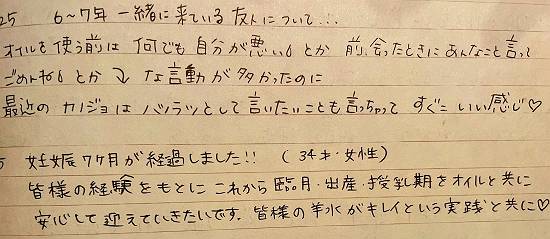 25 6～7年 一緒に来ている友人について...
オイルを使う前は 何でも自分が悪い。とか 前、会ったときにあんなこと言って
ごめんね。とか ↷ な言動が多かったのに
最近のカノジョは ハツラツとして 言いたいことも言っちゃって すぐにいい感じ♡
妊娠7ヶ月が経過しました!! (34才・女性)
皆様の経験をもとに これから臨月・出産・授乳期をオイルと共に
安心して迎えていきたいです。皆様の羊水がキレイという実践と共に♡